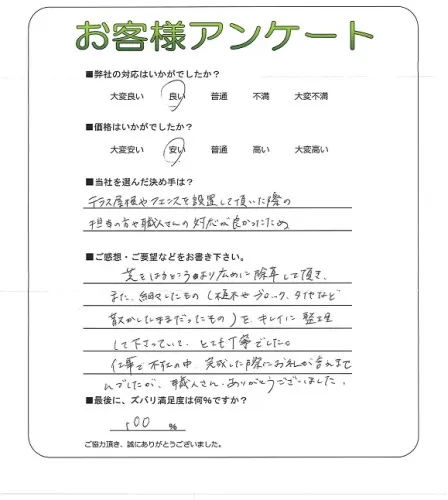 お客様アンケート
■弊社の対応はいかがでしたか？
大変良い 良い 普通 不満 大変不満
■価格はいかがでしたか？
大変安い 安い 普通 高い 大変高い
■当社を選んだ決め手は？
テラス屋根やフェンスを設置して頂いた際の
担当の方や職人さんの対応が良かったため
■ご感想・ご要望などをお書き下さい。
芝をはるところより広めに除草して頂き、
また、細々したもの（植木やブロック、タイヤなど
散かしたままだったもの）を、キレイに整理
して下さっていて、とても丁寧でした。
仕事で不在の中、完成した際にお礼が言えませ
んでしたが、職人さん、ありがとうございました。
■最後に、ズバリ満足度は何%ですか？
100 %
ご協力頂き、誠にありがとうございました。